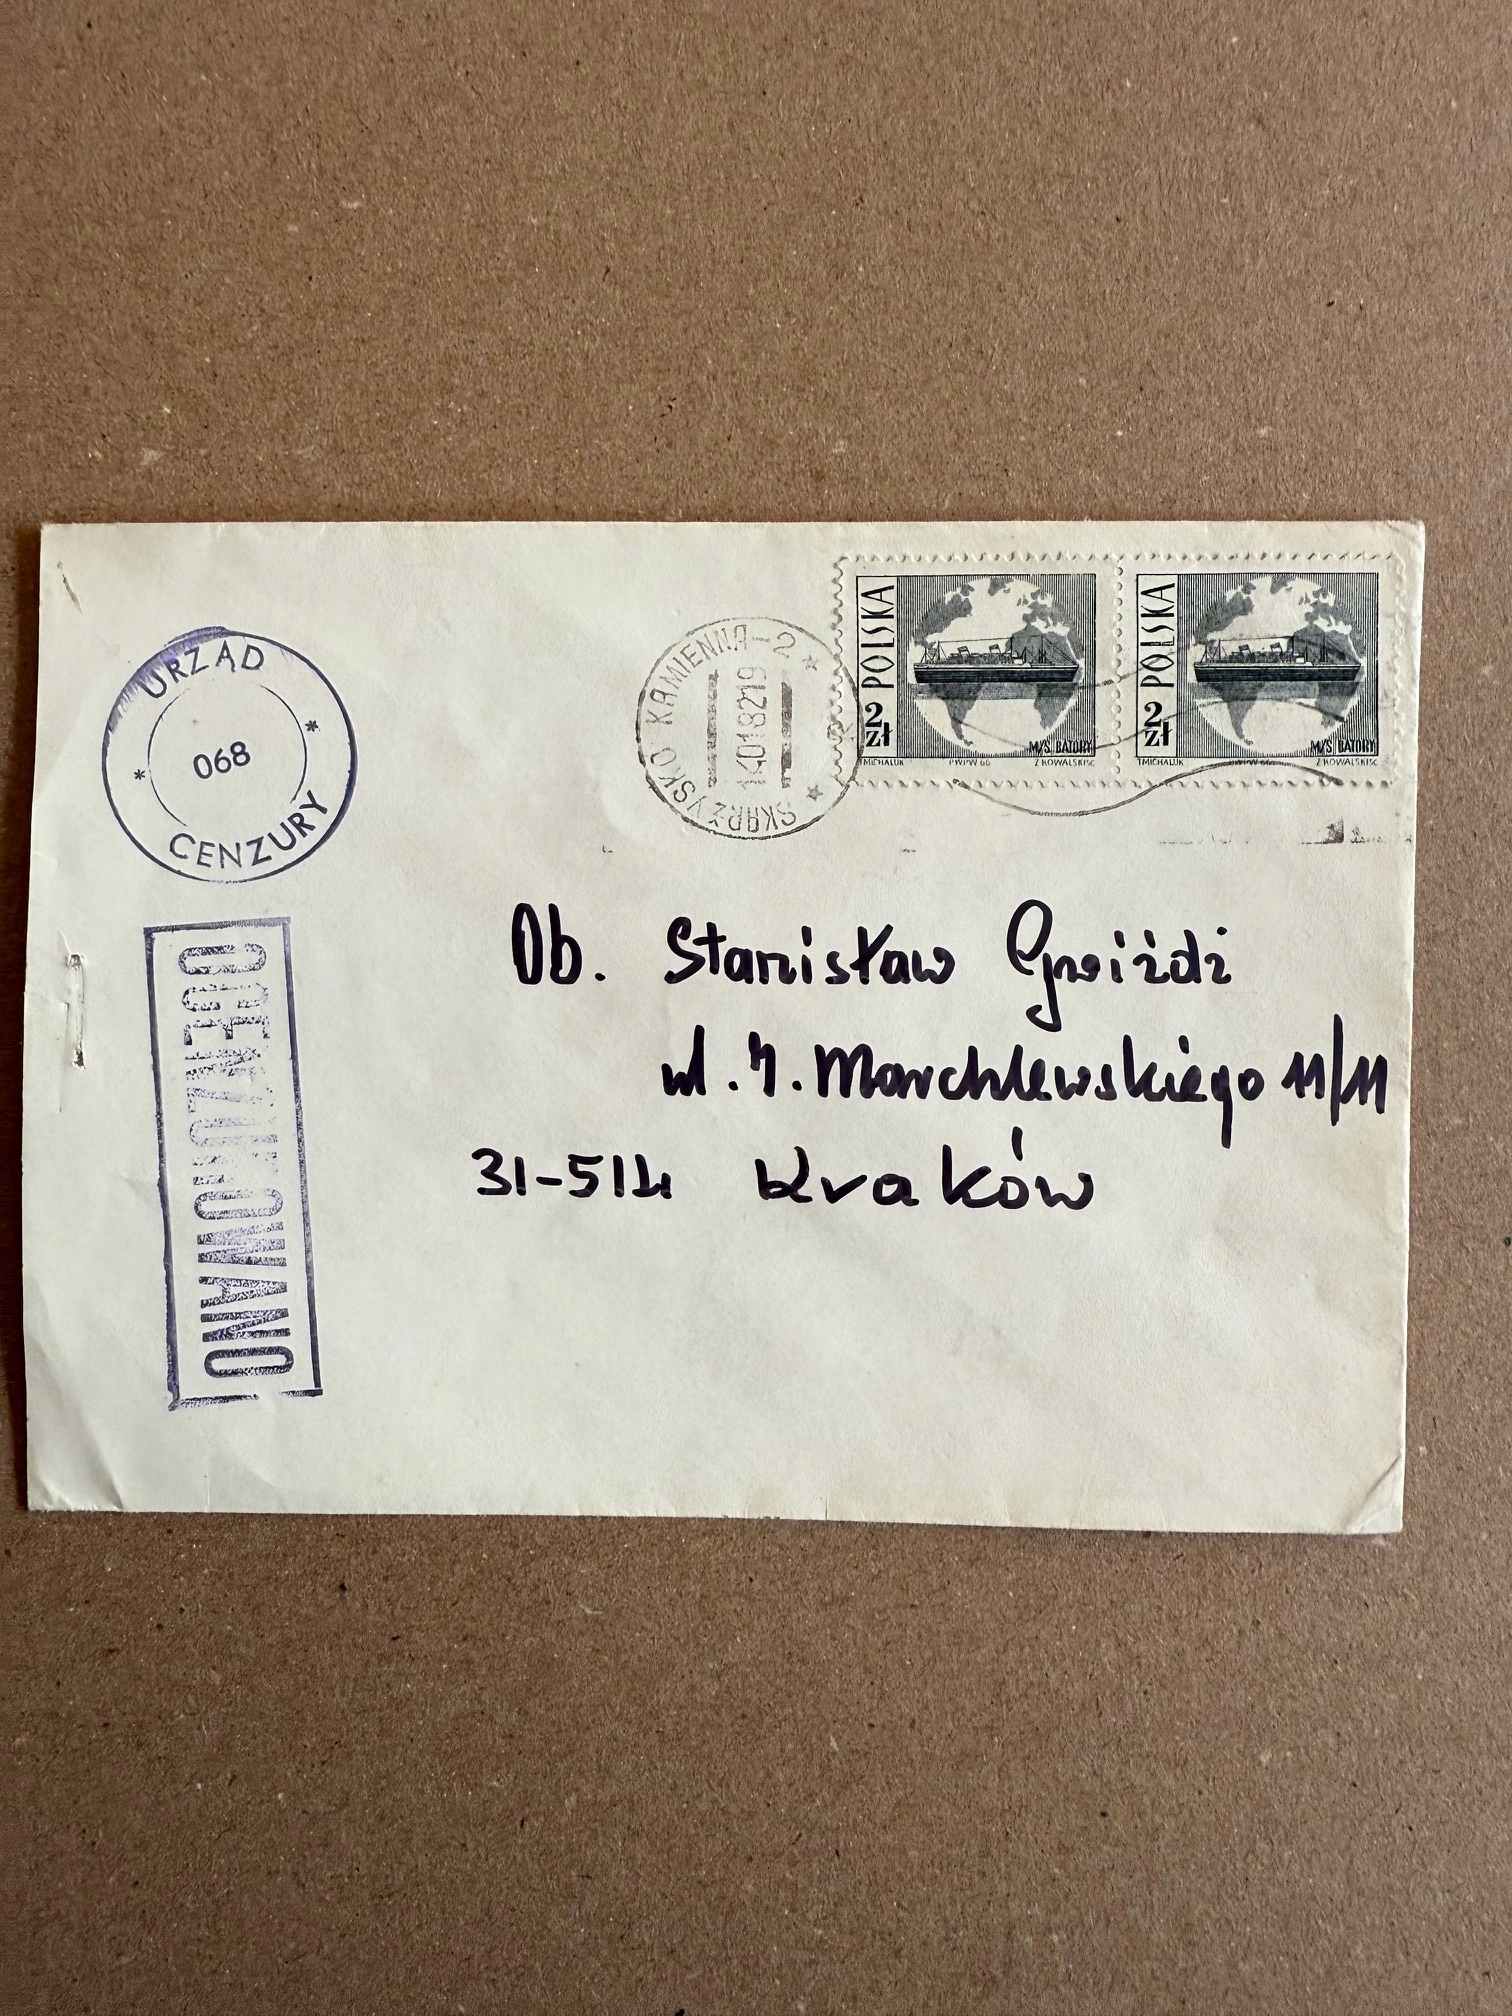 URZĄD
* 068 *
CENZURY
OCENZUROWANO
SKARŻYSKO KAMIENNA-2
14.01.82.19
POLSKA
2 zł
M/S BATORY
T.MICHALUK PWPW 66 Z.KOWALSKI SC
POLSKA
2 zł
M/S BATORY
T.MICHALUK PWPW 66 Z.KOWALSKI SC
Ob. Stanisław Gwiżdż
ul. J. Marchlewskiego 11/11
31-514 Kraków